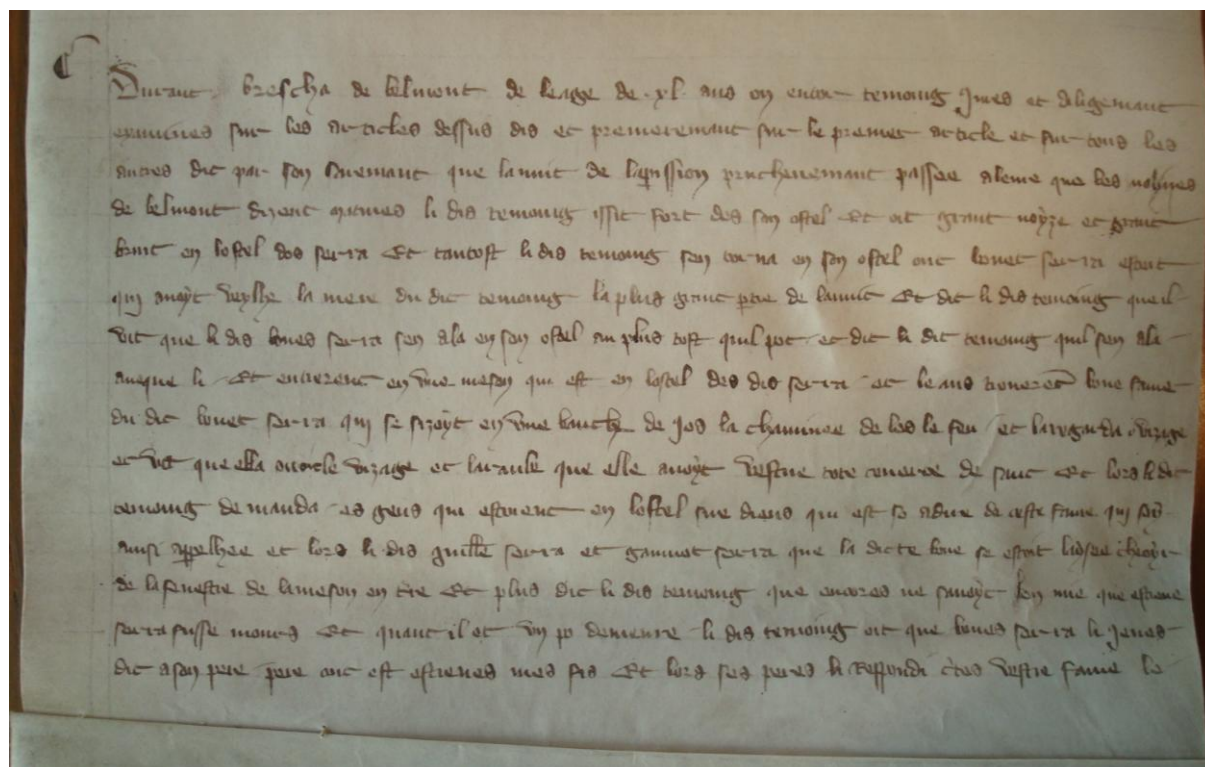 Durant brescha de belmont de leage de xl ans ou encor temoing Jures et diligemant
examines sur les articles dessus dis et premeremant sur le premer article et sur tous les
autres dit par son sarement que la nuit de laparission pruchenemant passee aleure que les
de belmont li dis temoing issit fort des son ostel Et oit grant noyze et grant
bruit en lostel dos serra Et tantost li dis temoing sen torna en son ostel ont bonet serra estoit
qui avoyt veylhe la mere du dit temoing la plus grant partie de la nuit Et dit li dis temoing que il
vit que li dis bones serra sen ala en son ostel au plus tost quil pot et dit li dit temoing quil sen ala
aveque li Et entrerent en une meson qui est en lostel des dis serra et leans troverent bone fame
du dit bonet serra qui se sizoyt en une banche de jos la chaminee de les le feu et la regarda
et vit que ella avoit le vizage et la raube que elle avoyt vestue tote coverte de sanc Et lors li dit
temoing demanda es gens qui estoient en lostel sue diens qui est so de ceste fame qui
ainsi appelhee et lors li dis guillelme serra et gannot serra que la dicte bone se estoit
de la fenestre de la meson en terre Et plus dit li dis temoing que encores ne savoyt len mie que estiene
serra fusse mours Et quant il et un po demeure li dis temoing oit que bones serra li jenes
dit a son pere pere ont est estienes mes fis Et lors ses peres li respondi certes vostre fame le